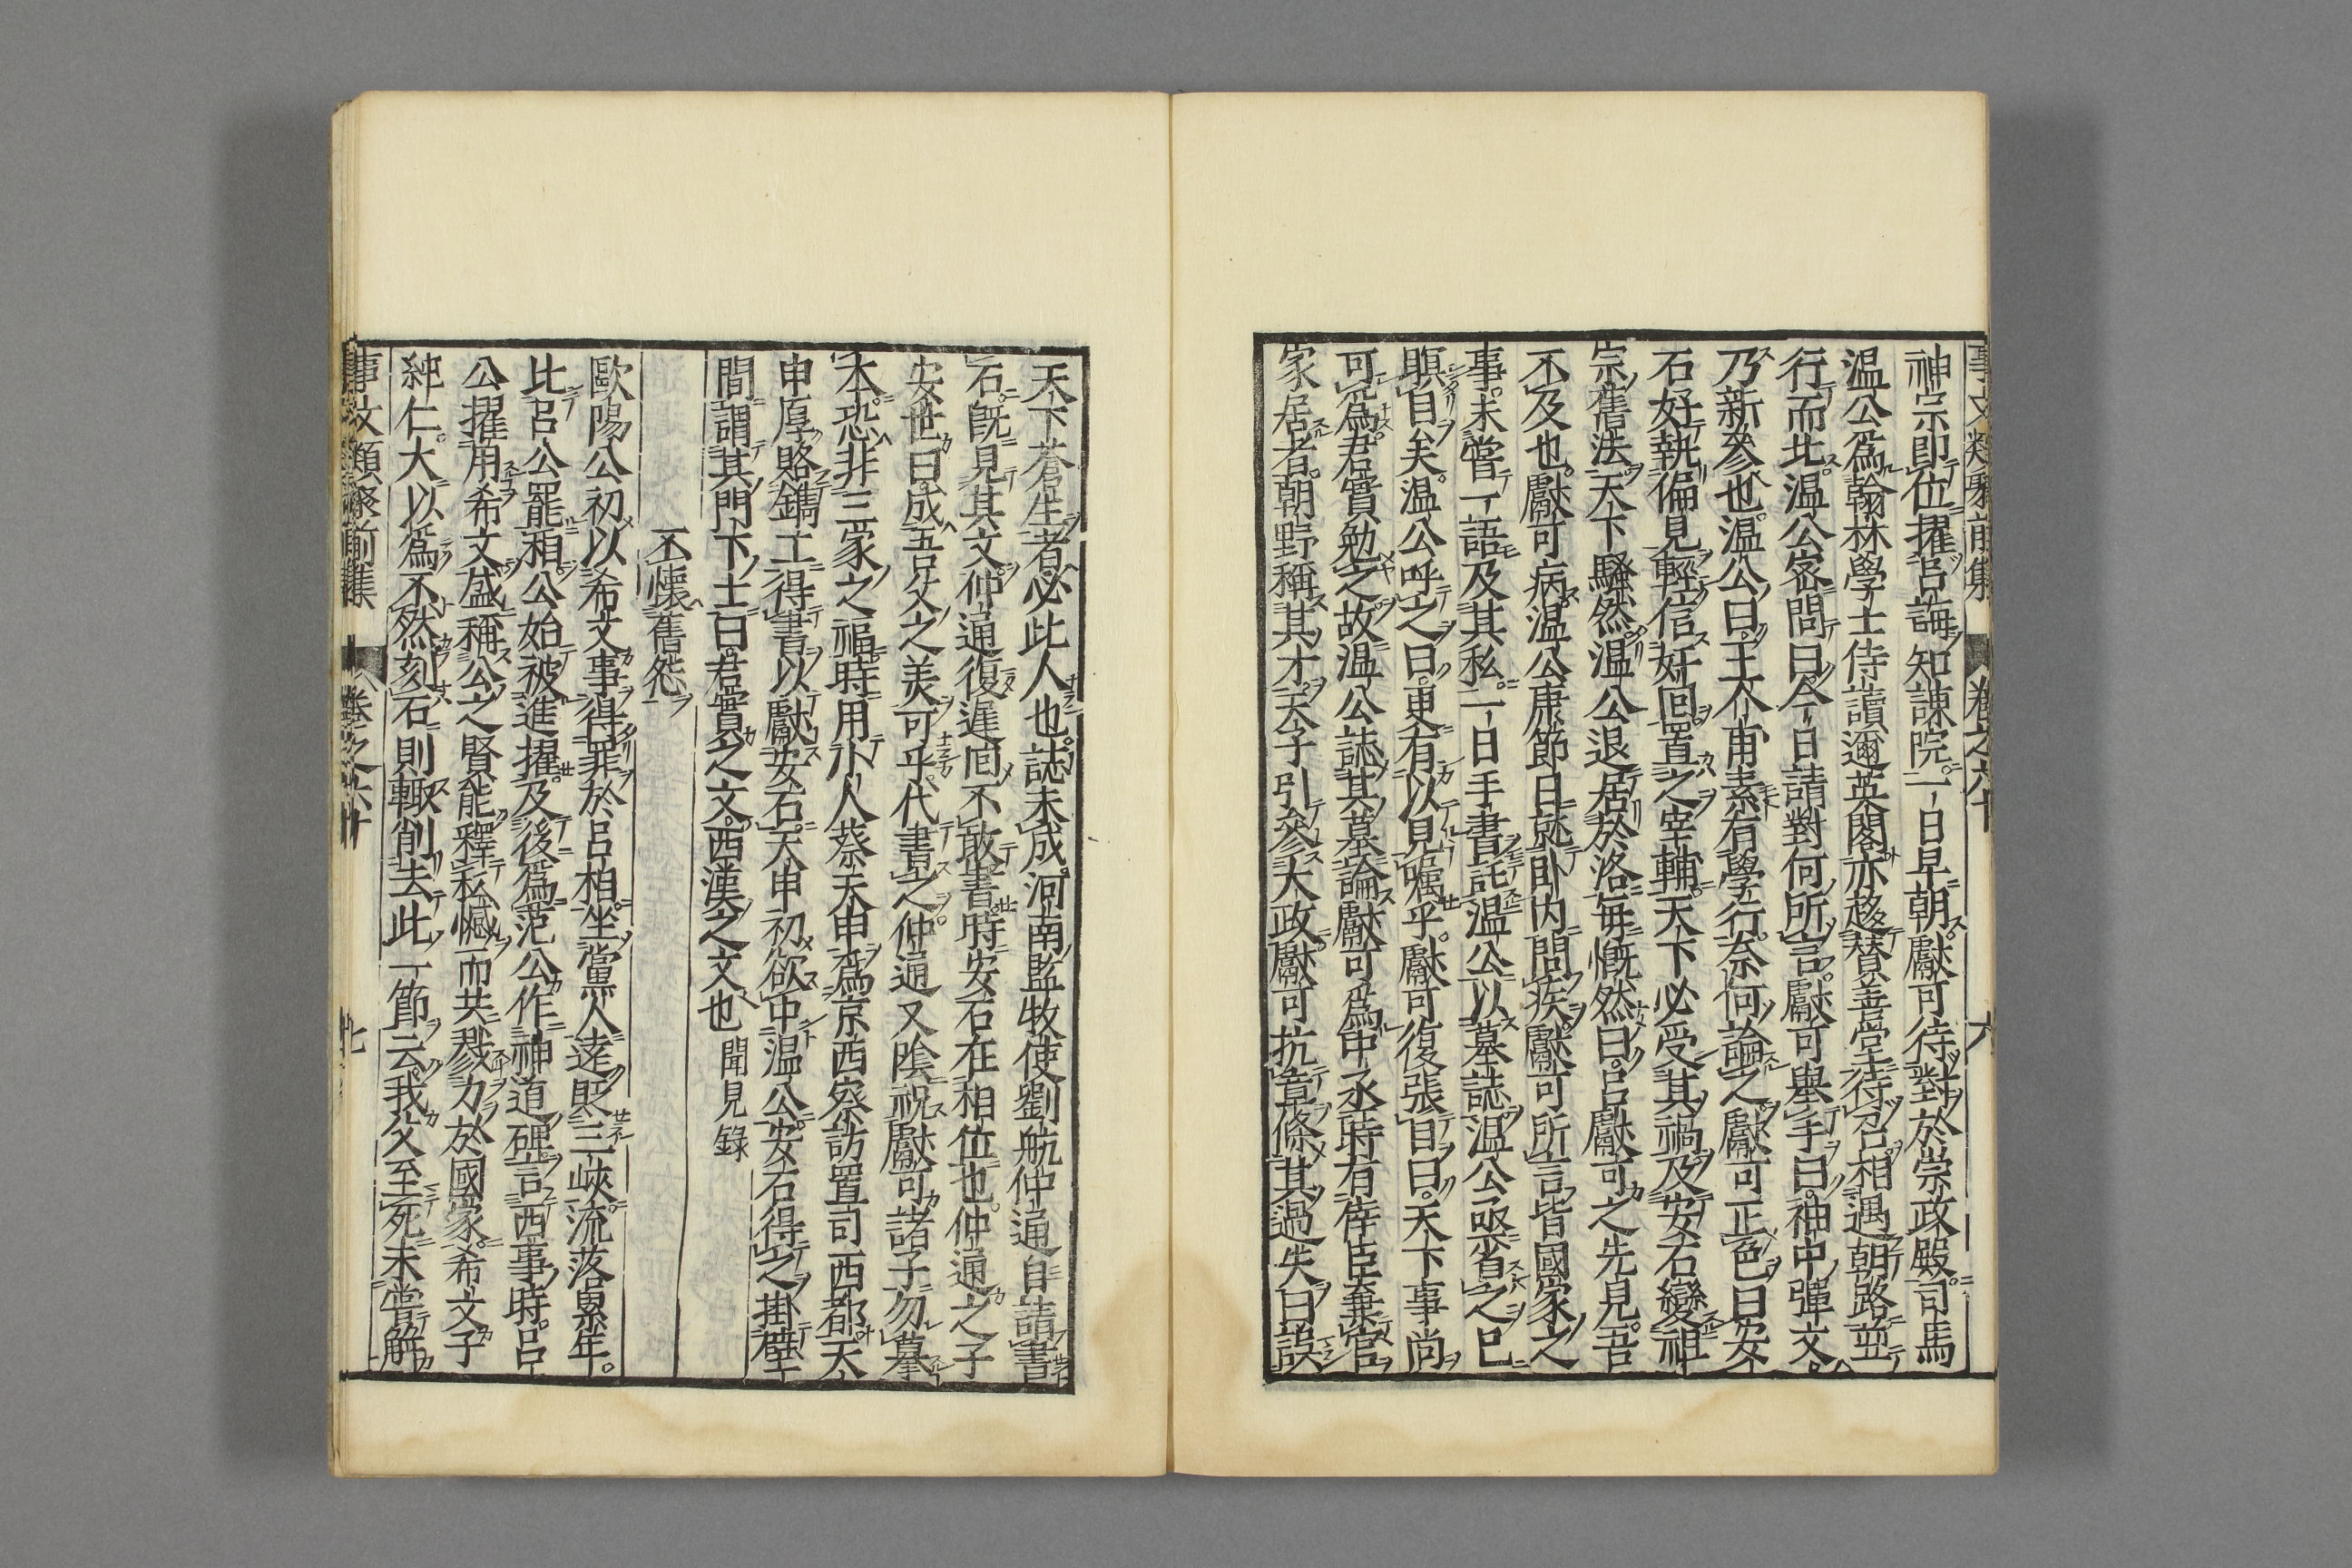 事文類聚前集 卷之六十 六
神宗即位擢呂誨知諫院一日早朝獻可待對於崇政殿司馬
温公爲翰林學士侍讀邇英閣亦趍賛善堂待召相遇朝路並
行而北温公密問曰今日請對何所言獻可舉手曰袖中彈文
乃新參也温公曰王介甫素有學行奈何論之獻可正色曰安
石好執偏見輕信奸回置之宰輔天下必受其禍及安石變祖
宗舊法天下騷然温公退居於洛毎慨然曰呂獻可之先見吾
不及也獻可病温公康節日就卧内問疾獻可所言皆國家之
事未嘗一語及其私一日手書託温公以墓誌温公亟省之已
瞑目矣温公呼之曰更有以見囑乎獻可復張目曰天下事尚
可爲君實勉之故温公誌其墓論獻可爲中丞時有侍臣棄官
家居者朝野稱其才天子引參大政獻可抗章條其過失曰誤
天下蒼生者必此人也誌未成河南監牧使劉航仲通自請書
石既見其文仲通復遲囘不敢書時安石在相位也仲通之子
安世曰成吾父之美可乎代書之仲通又陰祝獻可諸子勿摹
本恐非三家之福時用小人蔡天申爲京西察訪置司西都天
申厚賂鐫工得書以獻安石天申初欲中温公安石得之掛壁
間謂其門下士曰君實之文西漢之文也 聞見録
不懷舊怨
歐陽公初以希文事得罪於呂相坐黨人遠貶三峽流落累年
比呂公罷相公始被進擢及後爲范公作神道碑言西事時呂
公擢用希文盛稱公之賢能釋私憾而共戮力於國家希文子
純仁大以爲不然刻石則輙削去此一節云我父至死未嘗解
事文類聚前集 卷之六十 七